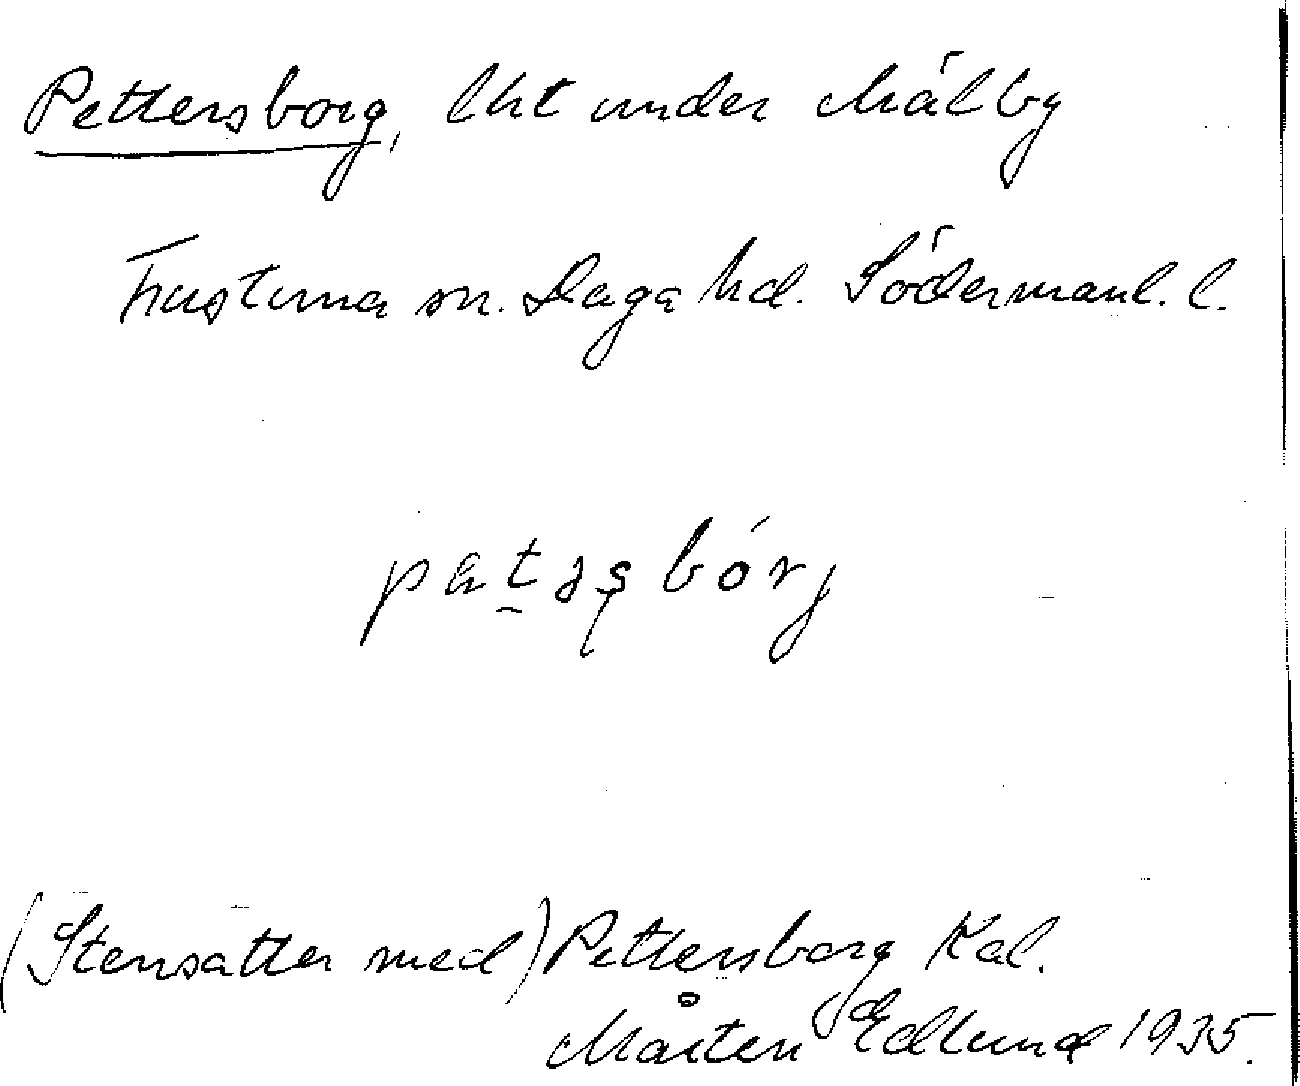 Pettersborg, lht under Mälby
Frustuna sn. Daga hd. Södermanl. l.
pätəṣbórj
(Stensätter med) Pettersborg Kal.
Mårten Edlund 1935.